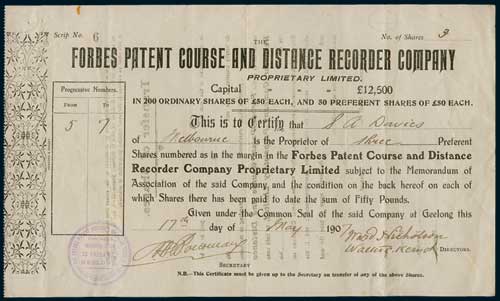 Scrip No. 6 No. of Shares 3
THE
FORBES PATENT COURSE AND DISTANCE RECORDER COMPANY
PROPRIETARY LIMITED.
Capital " " " £12,500
IN 200 ORDINARY SHARES OF £50 EACH, AND 50 PREFERENT SHARES OF £50 EACH.
Progressive Numbers.
FROM TO
5 7
This is to Certify that S A Davies
of Melbourne is the Proprietor of three Preferent
Shares numbered as in the margin in the Forbes Patent Course and Distance
Recorder Company Proprietary Limited subject to the Memorandum of
Association of the said Company, and the condition on the back hereof on each of
which Shares there has been paid to the date sum of Fifty Pounds.
Given under the Common Seal of the said Company at Geelong this
17th day of May 1907
Ward Nicholson
DIRECTORS.
SECRETARY
N.B.—This Certificate must be given up to the Secretary on transfer of any of the above Shares.